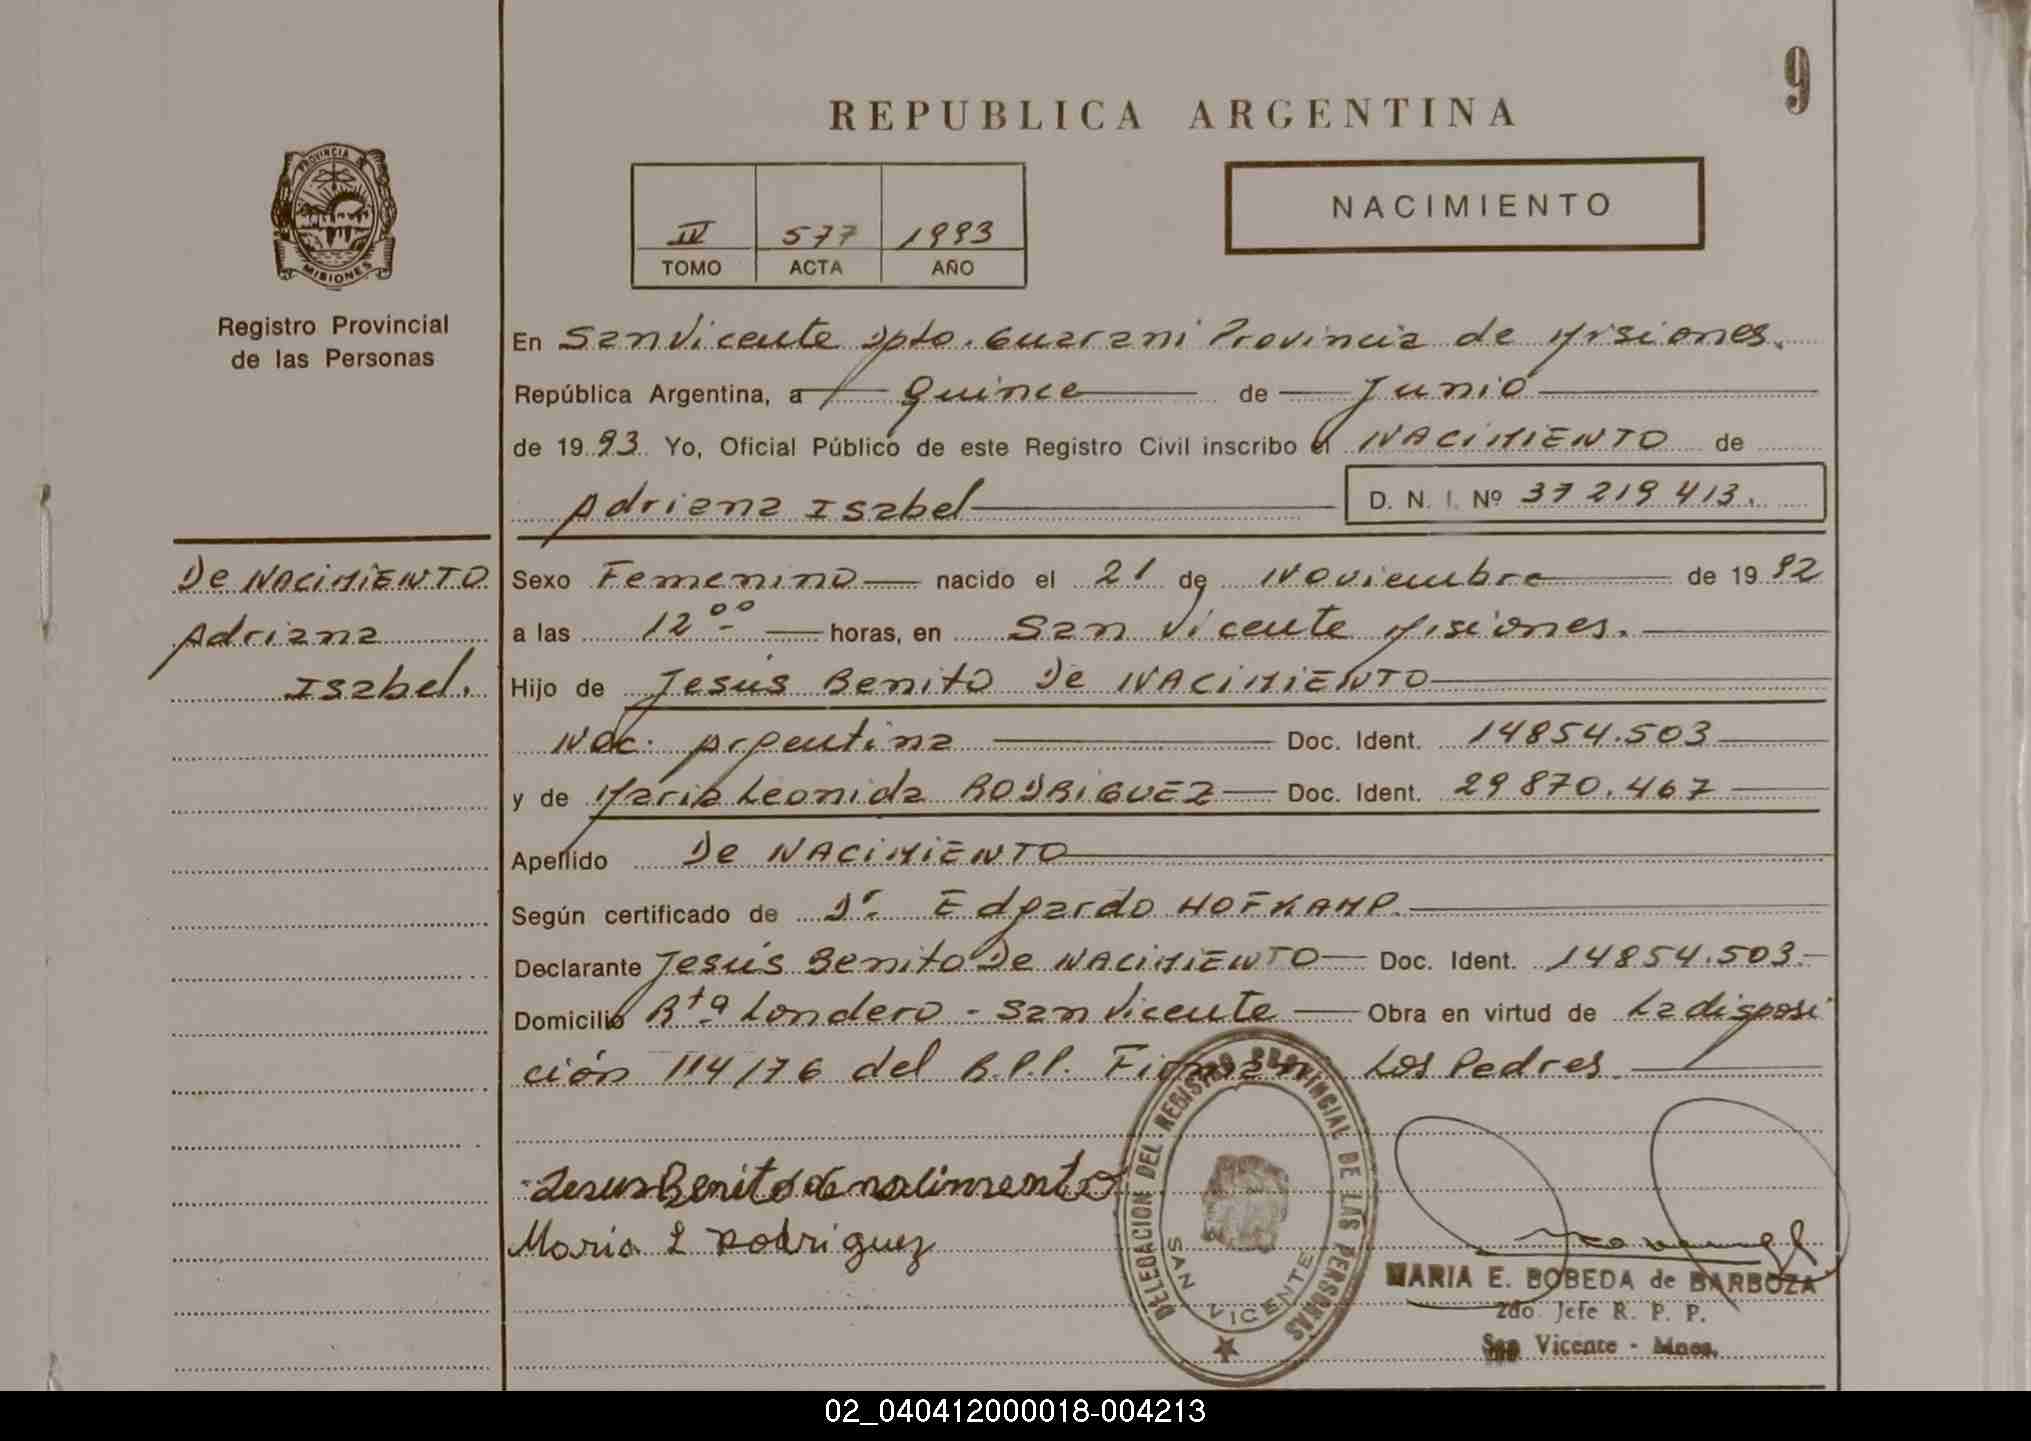 9
REPUBLICA ARGENTINA
PROVINCIA
MISIONES
Registro Provincial
de las Personas
IV 577 1993
TOMO ACTA AÑO
NACIMIENTO
En San Vicente Dpto. Guarani Provincia de Misiones.
República Argentina, a Quince de Junio
de 1993 Yo, Oficial Público de este Registro Civil inscribo el NACIMIENTO de
Adriana Isabel D. N. I. Nº 37 219 413.
De NACIMIENTO
Adriana
Isabel.
Sexo Femenino nacido el 21 de Noviembre de 1992
a las 12°° horas, en San Vicente Misiones.
Hijo de Jesús Benito De NACIMIENTO
Nac. Argentina Doc. Ident. 14854.503
y de Maria Leonida RODRIGUEZ Doc. Ident. 29870.467
Apellido De NACIMIENTO
Según certificado de Dr. Edgardo HOFKAMP.
Declarante Jesús Benito De NACIMIENTO Doc. Ident. 14854.503.
Domicilio Rta Londero - San Vicente Obra en virtud de La disposi
ción 114/76 del R.P.P. Firman Los Padres.
Jesus Benito de nacimiento
Maria L Rodriguez
DELEGACION DEL REGISTRO PROVINCIAL DE LAS PERSONAS
SAN VICENTE
MARIA E. BOBEDA de BARBOZA
2do. Jefe R. P. P.
San Vicente - Mnes.
02_040412000018-004213